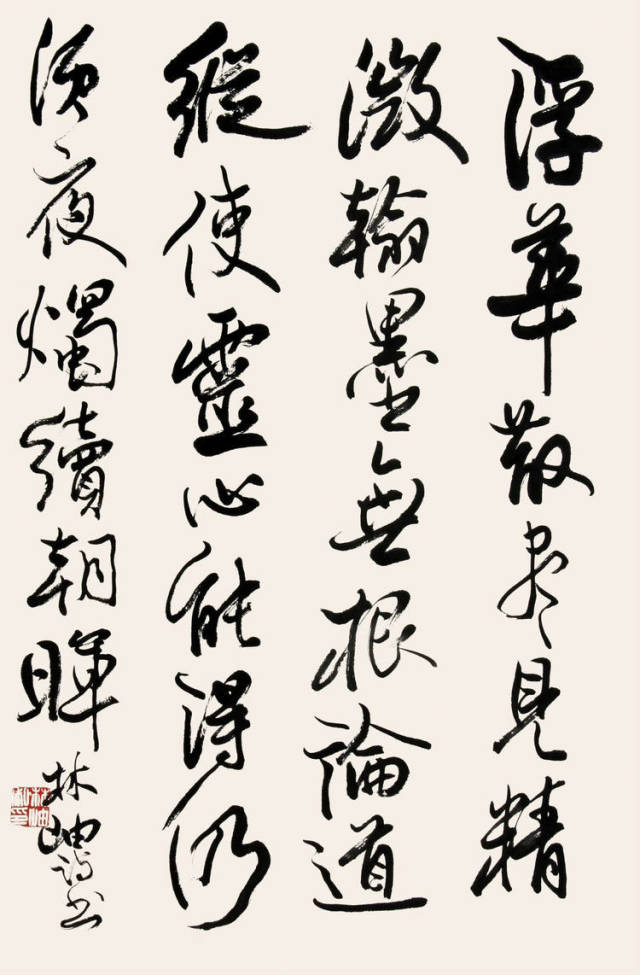 浮華散尽見精
微翰墨無根論道
縱使靈心能得仍
須夜燭續朝暉
林岫詩书